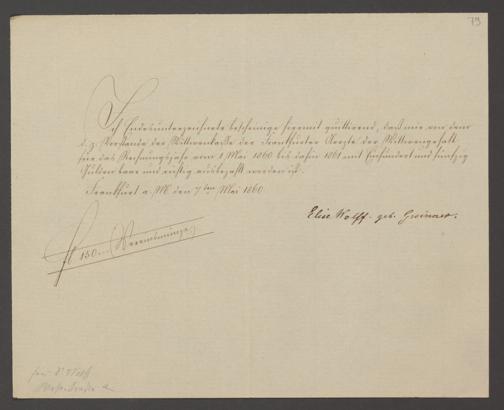 79
Ich Endesunterzeichnete bescheinige hiermit quittirend, daß mir von dem
d. z. Vorstande der Wittwenkasse der Frankfurter Aerzte der Wittwengehalt
für das Rechnungsjahr vom 1 Mai 1860 bis dahin 1861 mit Einhundert und fünfzig
Gulden baar und richtig ausbezahlt worden ist.
Frankfurt a/M den 7ten Mai 1860.
Elise Wolff. geb.
fl 150 (Vereinsmünze)
Frau Dr Wolff